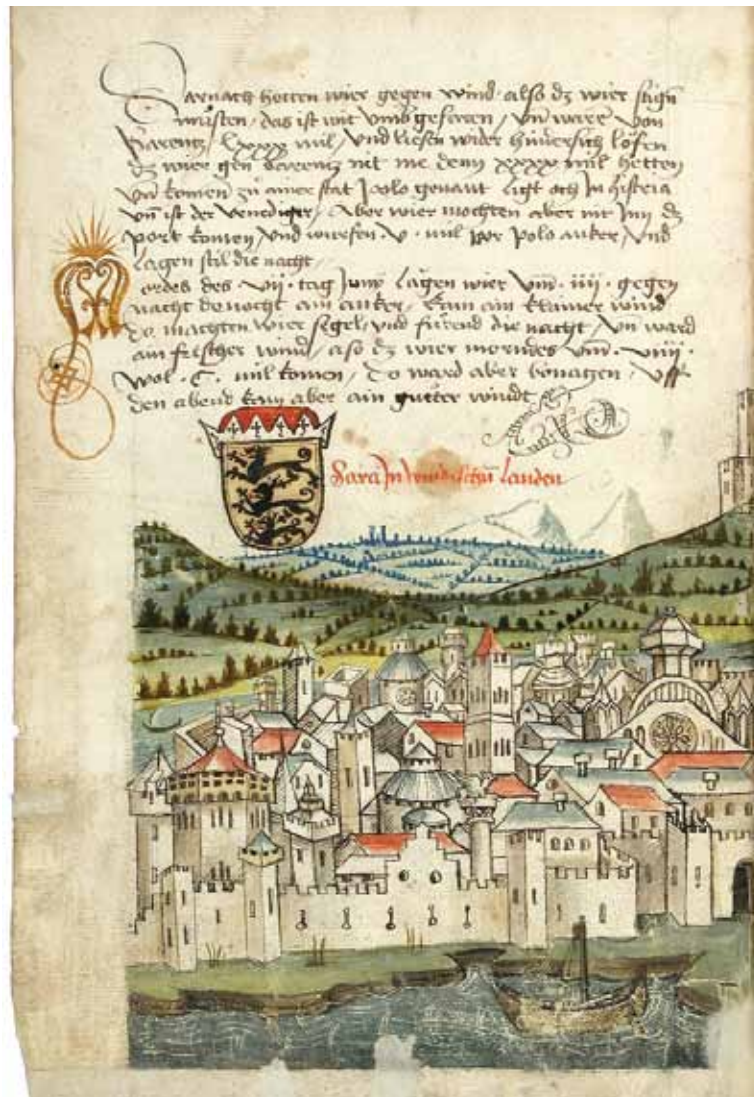 Darnach hetten wier gegen wind also dz wier
musten das ist wit umb gefaren / vnd waren von
Parentz lxxx mil / vnd liesen wider hinersich
dz wier gen Parentz nit me denn xxxx mil hetten
vn komen zu ainer stat polo genant ligt och in histeria
vn ist der venediger / Aber wier mochten aber nit inn dz
port komen / vnd wurfen · v · mil vor polo anker / vnd
lagen stil die nacht
ordes des vii · tag Juny lagen wier vm · iiii · gegen
nacht am anker / kam ain klainer wind
do machten wier segel / vnd die nacht / vn ward
ain frischer wind / also dz wier morndes vm · viiii ·
wol · C · mil komen / do ward aber · vff
den abend kam aber ain gutter windt
Sara In landen